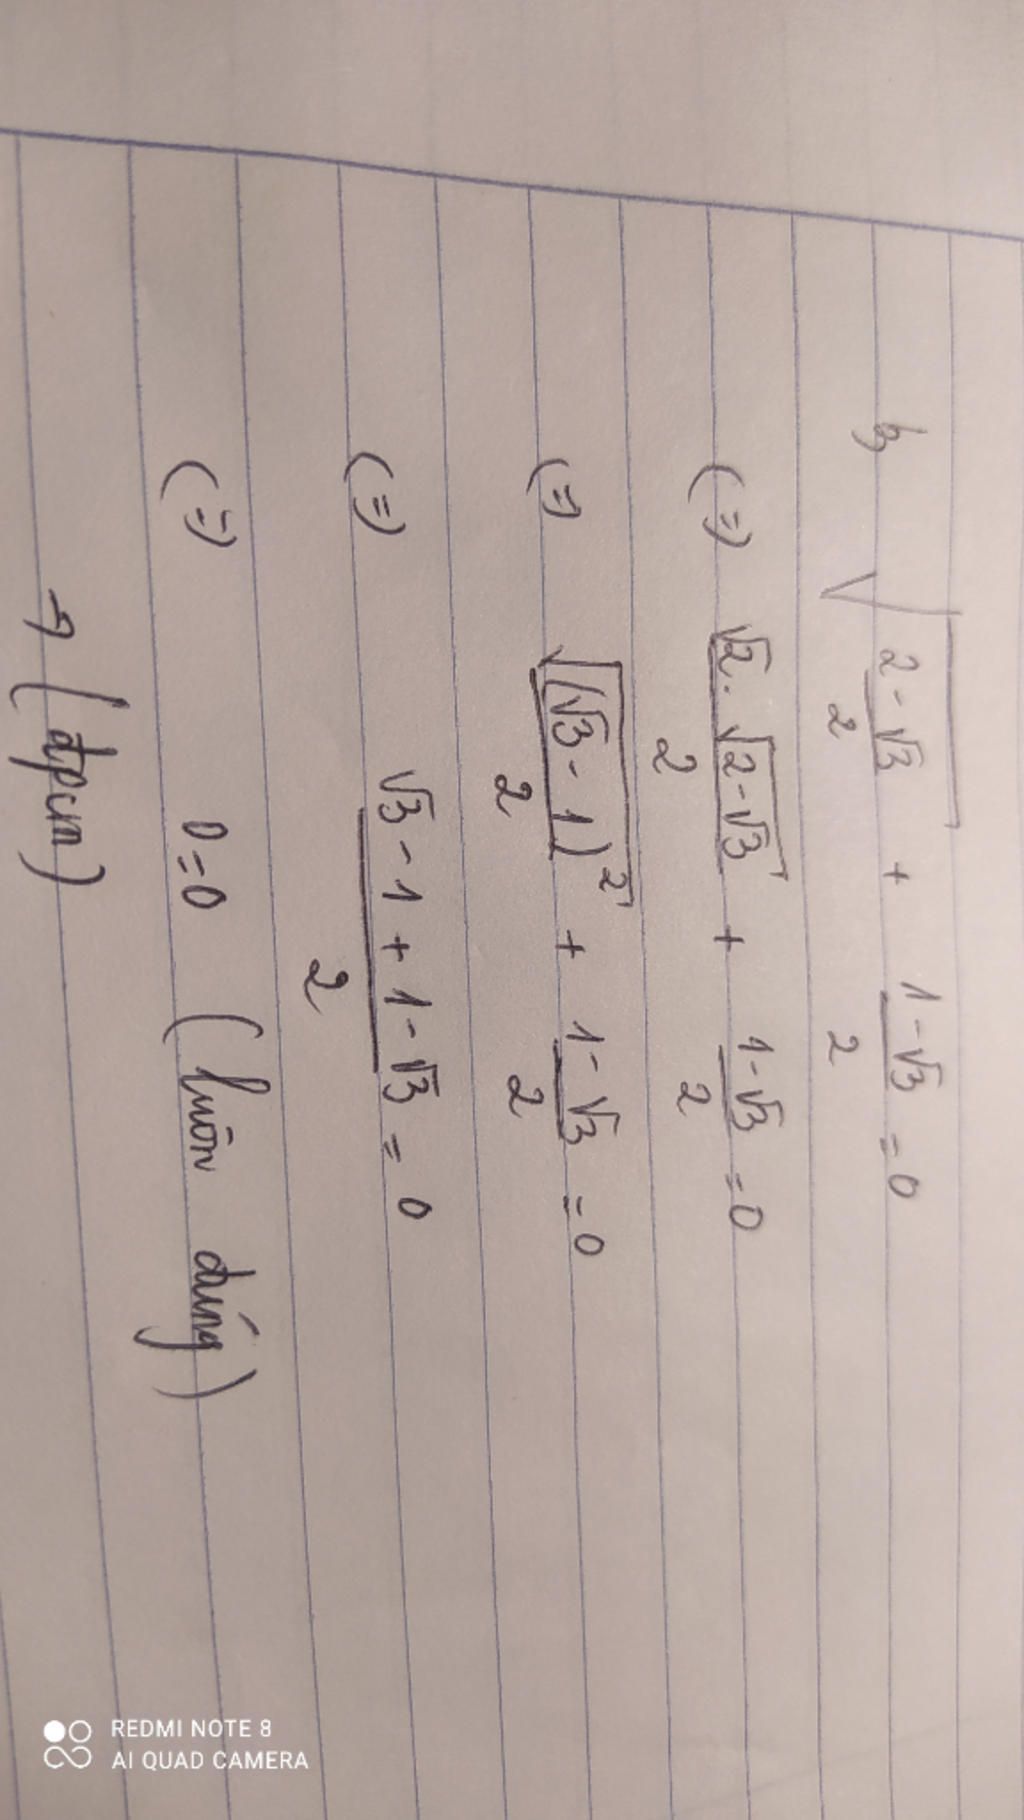 b, √((2-√3)/2) + (1-√3)/2 = 0
(=) (√2.√(2-√3))/2 + (1-√3)/2 = 0
(=) √((√3-1)²)/2 + (1-√3)/2 = 0
(=) (√3-1+1-√3)/2 = 0
(=) 0=0 (luôn đúng)
→ (đpcm)
REDMI NOTE 8
AI QUAD CAMERA